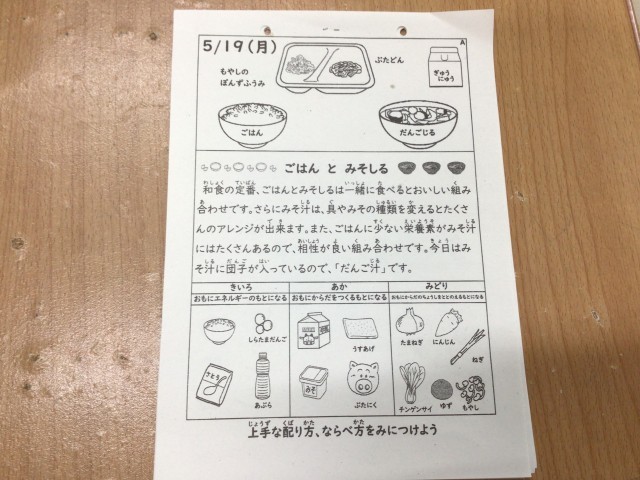 5/19(月)
A
もやしの
ぽんずふうみ
ぶたどん
ぎゅう
にゅう
ごはん
だんごじる
ごはん と みそしる
和食の定番、ごはんとみそしるは一緒に食べるとおいしい組み
合わせです。さらにみそ汁は、具やみその種類を変えるとたくさ
んのアレンジが出来ます。また、ごはんに少ない栄養素がみそ汁
にはたくさんあるので、相性が良い組み合わせです。今日はみ
そ汁に団子が入っているので、「だんご汁」です。
きいろ
おもにエネルギーのもとになる
しらたまだんご
さとう
あぶら
あか
おもにからだをつくるもとになる
うすあげ
みそ
ぶたにく
みどり
おもにからだのちょうしをととのえるもとになる
たまねぎ
にんじん
ねぎ
チンゲンサイ
ゆず
もやし
上手な配り方、ならべ方をみにつけよう